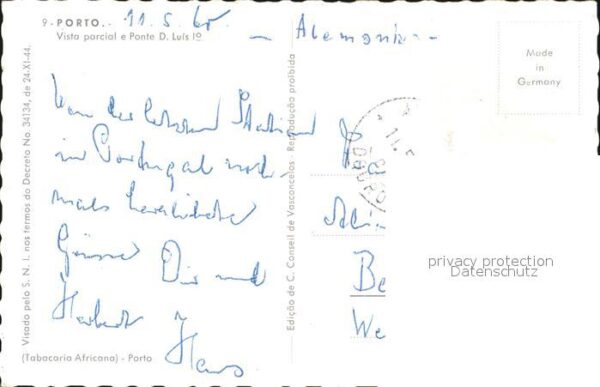 9 - PORTO. - 11.5.65
Vista parcial e Ponte D. Luís Iº
- Alemanha -
Made
in
Germany
Von der letzten Station
in Portugal noch-
mals herzlichste
Grüsse Dir und
Herbert Hans
Be
We
(Tabacaria Africana) - Porto
Visado pelo S. N. I. nos termos do Decreto No. 34134, de 24-XI-44.
Edição de C. Conseil de Vasconcelos - Reprodução proibida
privacy protection
Datenschutz